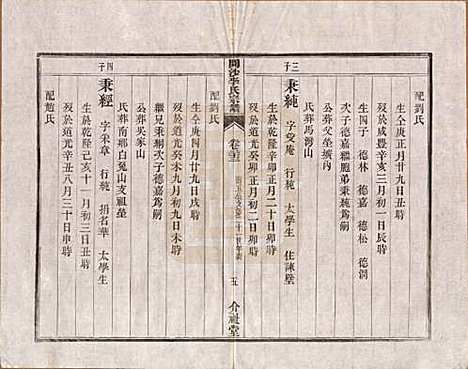 配劉氏
生仝庚正月廿九日丑時
歿於咸豐辛亥三月初一日辰時
四子 德林 德嘉 德松 德洞
公葬父塋壙內
次子德嘉繼胞弟秉純為嗣
氏葬馬灣山
三子
秉純 字受庵 行純 太學生 住諫壁
生於乾隆辛卯十二月初二日卯時
歿於道光癸未九月初九日未時
配
生仝庚四月廿九日戌時
歿於道光癸卯正月初二日卯時
繼兄秉樞次子德嘉為嗣
公葬吳家山
氏葬南鄉白兔山支祖塋
開沙李氏宗譜
卷三
五
介祉堂
四子
秉經 字秉章 行純 捐名華 太學生
生於乾隆己亥十一月初三日丑時
歿於道光辛丑八月三十日申時
配趙氏